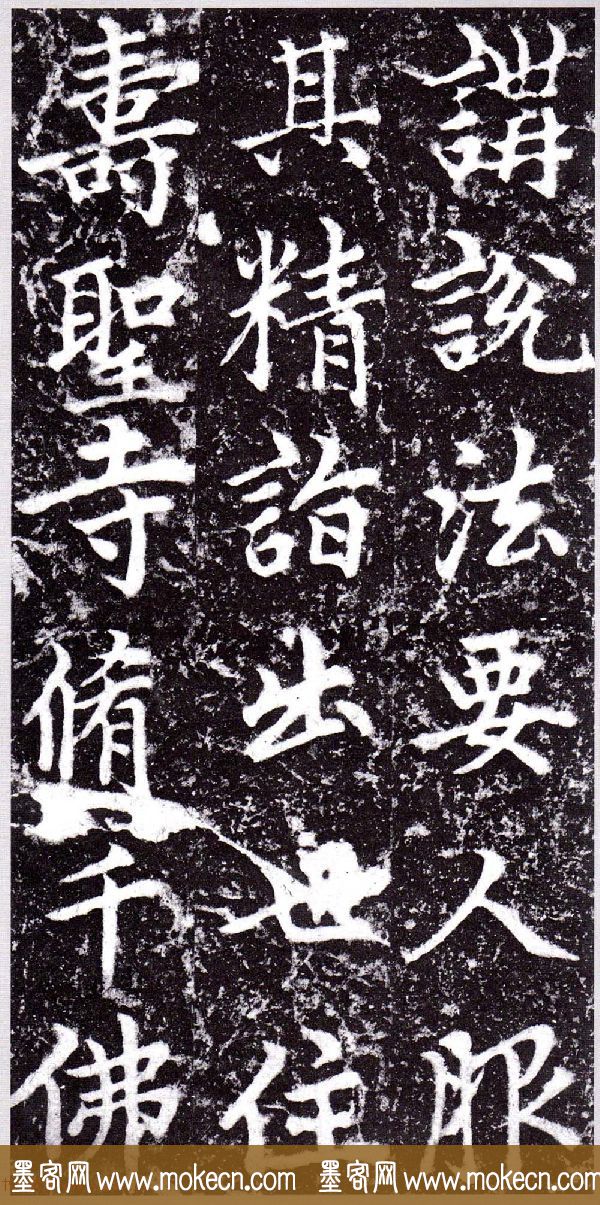 講說法要人服
其精詣出世住
壽聖寺脩千佛
墨客网 www.mokecn.com 墨客网 www.mokecn.com